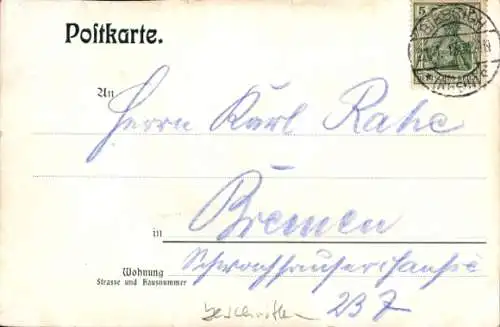 Postkarte.
5
An
Herrn Karl Rahe
in Bremen
Wohnung
Strasse und Hausnummer
Schwachhauser Chaussee
237
beschnitten